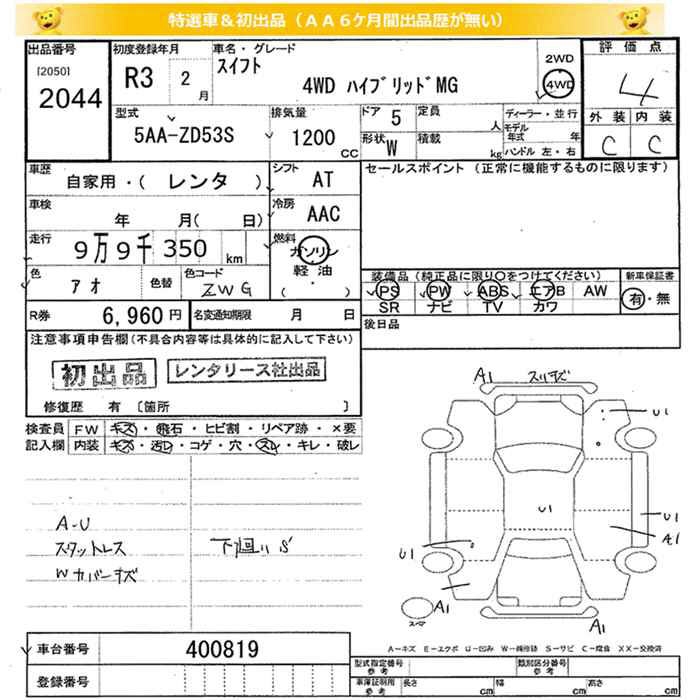 特選車&初出品(AA6ケ月間出品歴が無い)
出品番号
[2050]
2044
初度登録年月
R3 2 月
車名・グレード
スイフト
4WD ハイブリッドMG
2WD
4WD
評価点
4
外装 内装
C C
型式
5AA-ZD53S
排気量
1200 CC
ドア 5
形状 W
定員 人
積載 kg
ディーラー・並行
モデル年式 年
ハンドル 左・右
車歴
自家用・( レンタ )
シフト AT
車検
年 月( 日)
冷房 AAC
走行
9万9千350 km
燃料
ガソリン
軽油
( ・ )
色 アオ 色替
色コード ZWG
R券 6,960円
名変通知期限 月 日
セールスポイント(正常に機能するものに限ります)
装備品(純正品に限り○をつけてください)
PS PW ABS エアB AW
SR ナビ TV カワ
新車保証書
有・無
後日品
注意事項申告欄(不具合内容等は具体的に記入して下さい)
初出品 レンタリース社出品
修復歴 有 [箇所 ]
検査員記入欄
FW キズ・飛石・ヒビ割・リペア跡・×要
内装 キズ・汚レ・コゲ・穴・スレ・キレ・破レ
A-U
スタットレス
Wカバーキズ
下廻りS
A1 スリキズ
U1
U1
U1
A1
U1
A1
A1
スペア
A-キズ E-エクボ U-凹み W-補修跡 S-サビ C-腐食 XX-交換済
車台番号 400819
登録番号
型式指定番号 参考
類別区分番号 参考
車庫証明用 参考
長さ cm 幅 cm 高さ cm